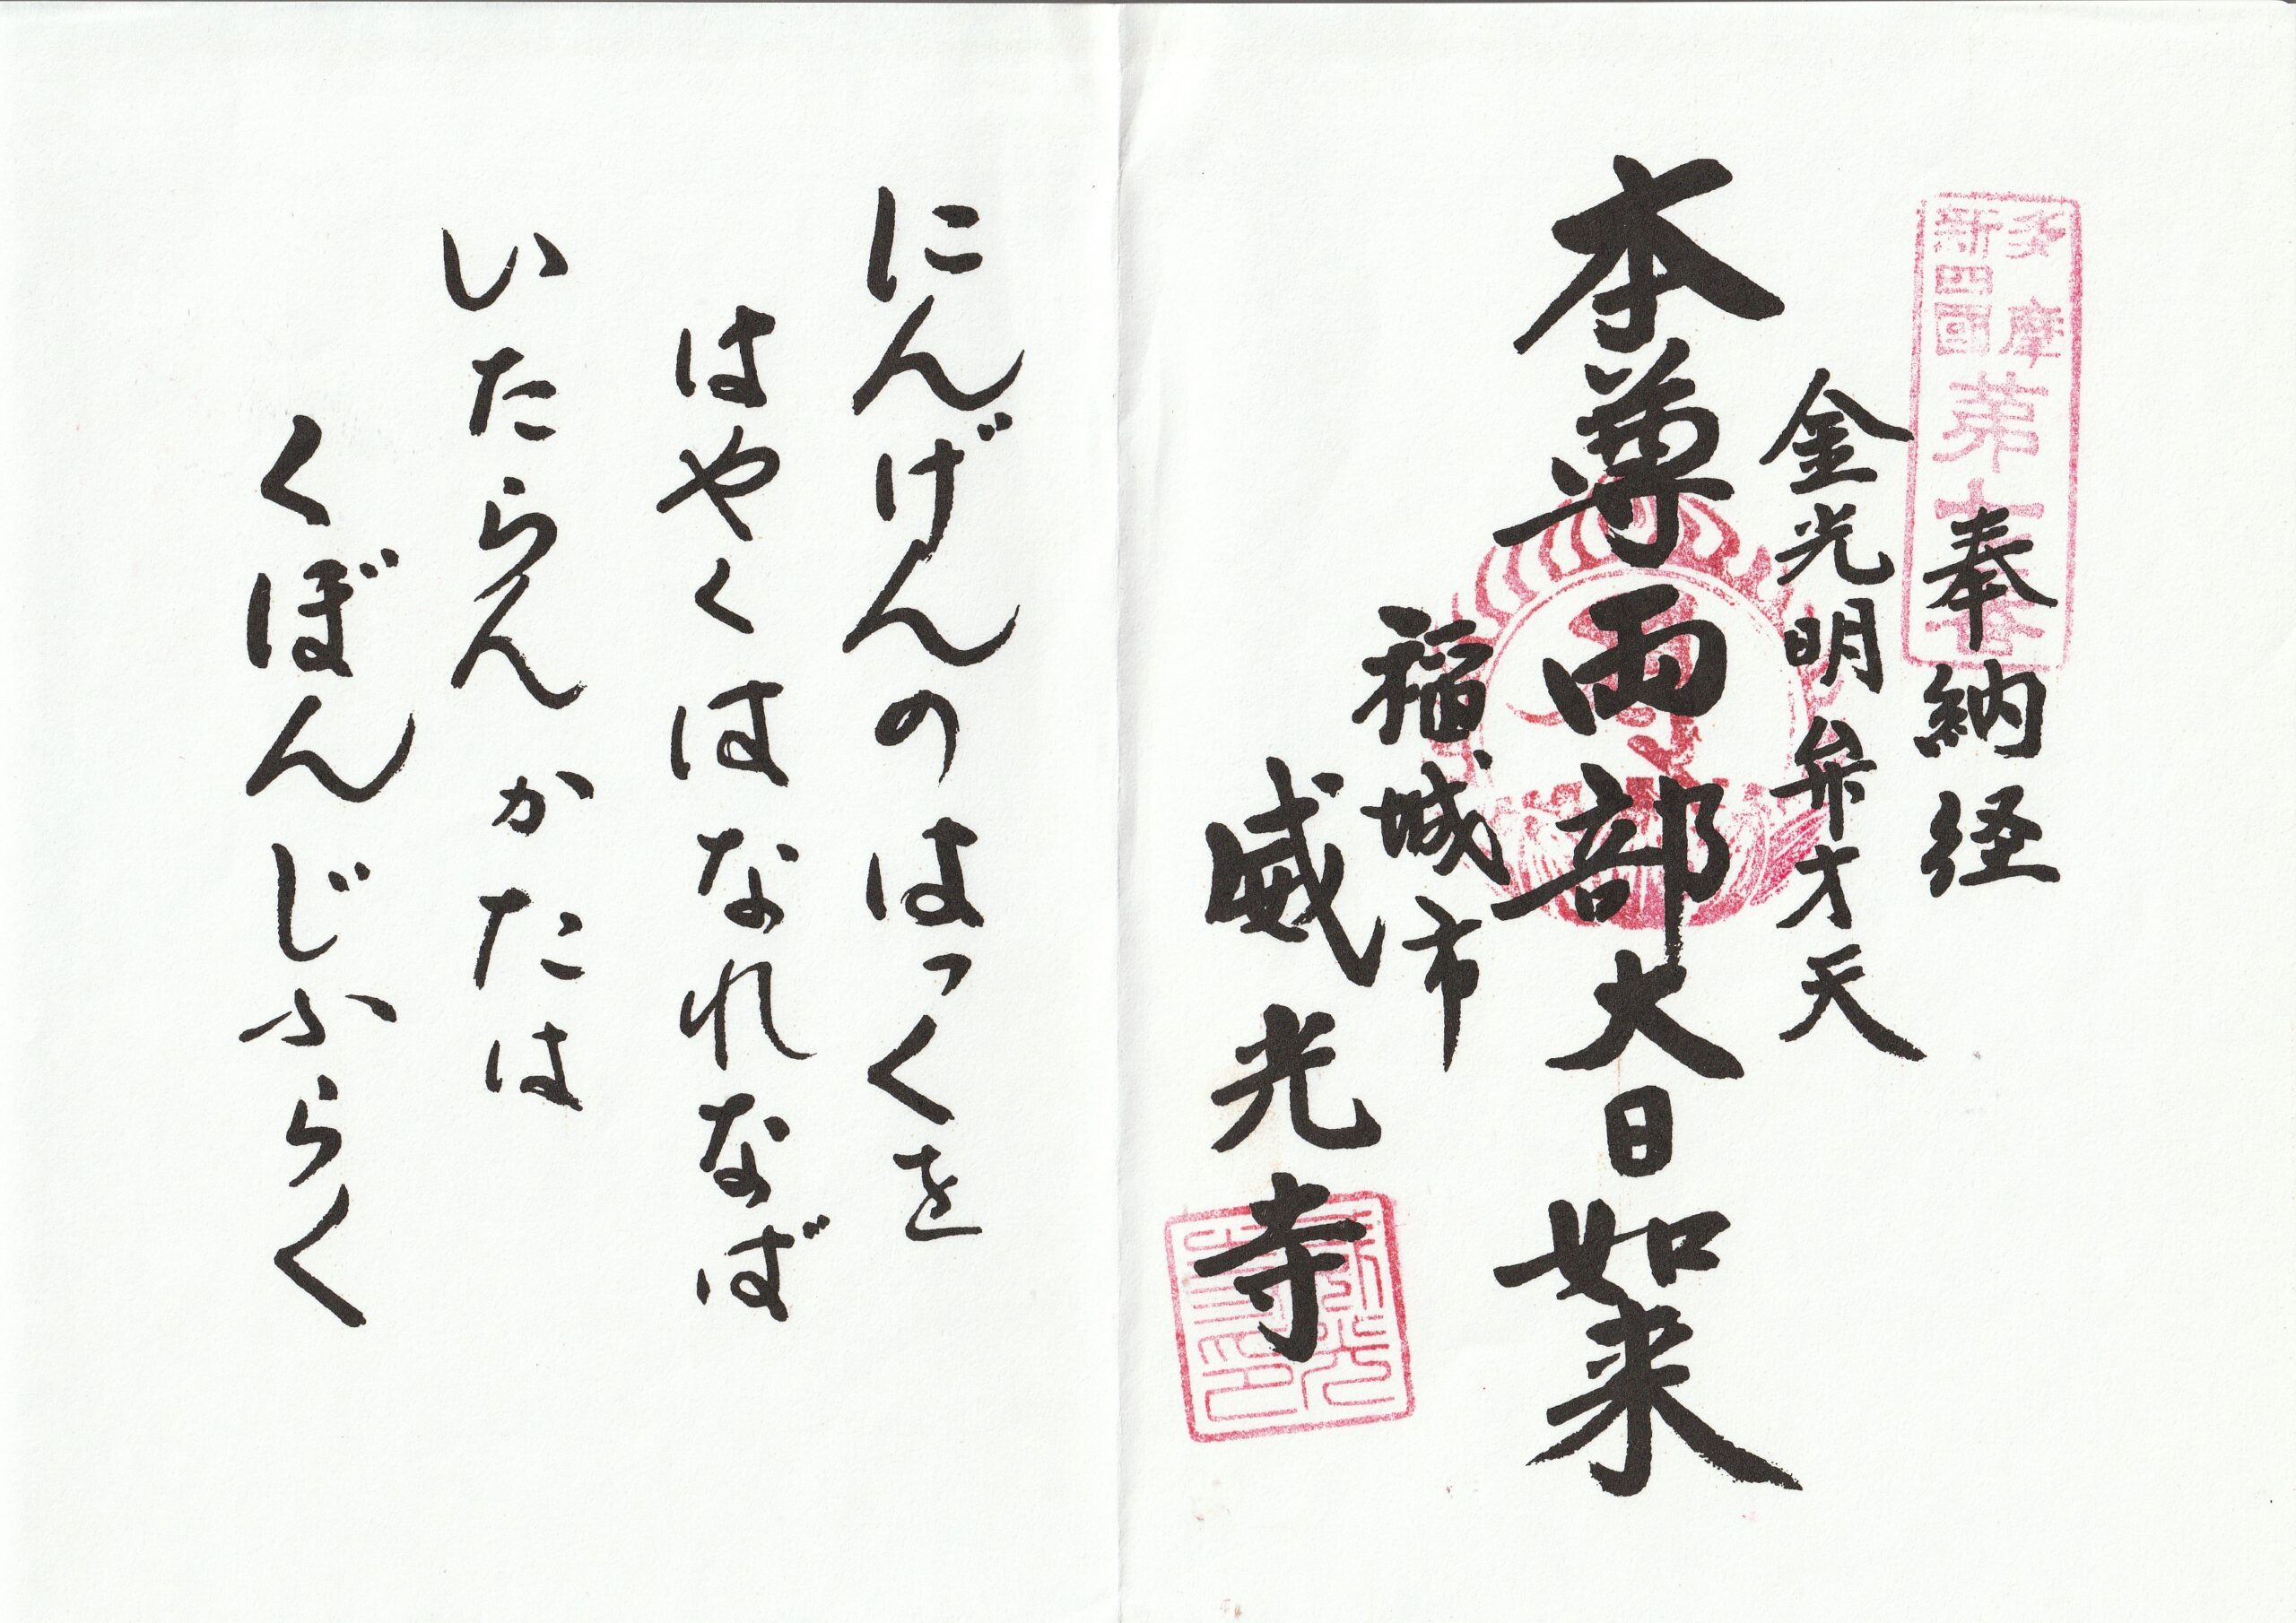 多摩
新四國
第十
奉納経
金光明弁才天
本尊両部大日如来
稲城市
威光寺
にんげんのはっくを
はやくはなれなば
いたらんかたは
くぼんじふらく